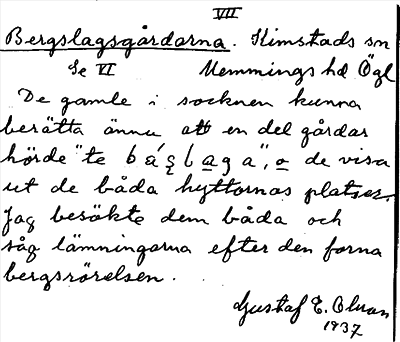 VII
Bergslagsgårdarna. Kimstads sn
Se VI Memmings hd Ögl
De gamle i socknen kunna
berätta ännu att en del gårdar
hörde "te bá̢s̢baga", o de visa
ut de båda hyttornas platser.
Jag besökte dem båda och
såg lämningarna efter den forna
bergsrörelsen.
Gustaf E. Olsson
1937